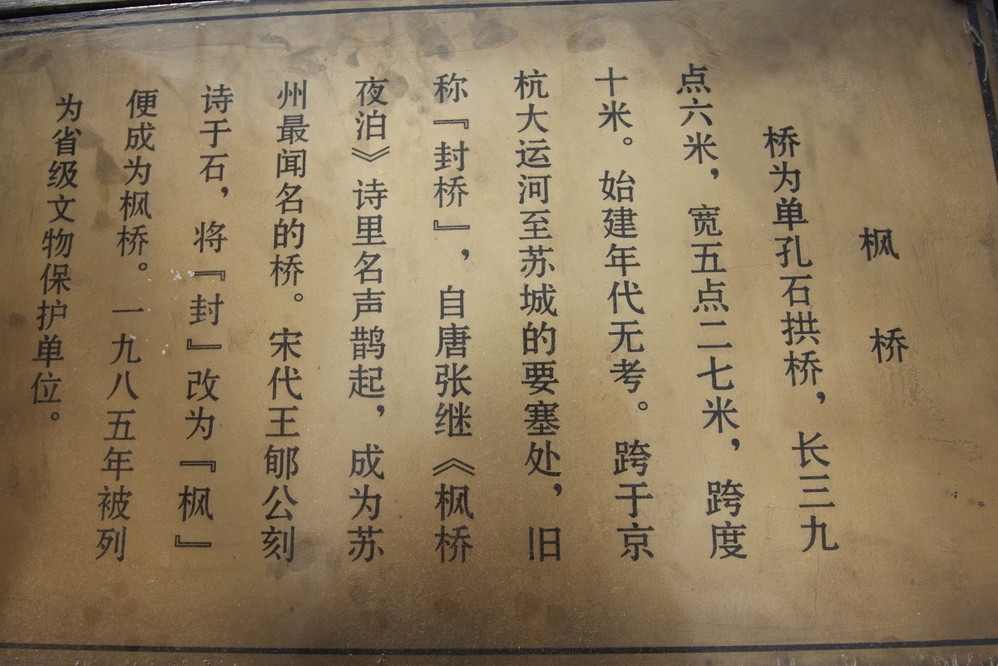 枫桥
桥为单孔石拱桥，长三九
点六米，宽五点二七米，跨度
十米。始建年代无考。跨于京
杭大运河至苏城的要塞处，旧
称『封桥』，自唐张继《枫桥
夜泊》诗里名声鹊起，成为苏
州最闻名的桥。宋代王郇公刻
诗于石，将『封』改为『枫』
便成为枫桥。一九八五年被列
为省级文物保护单位。